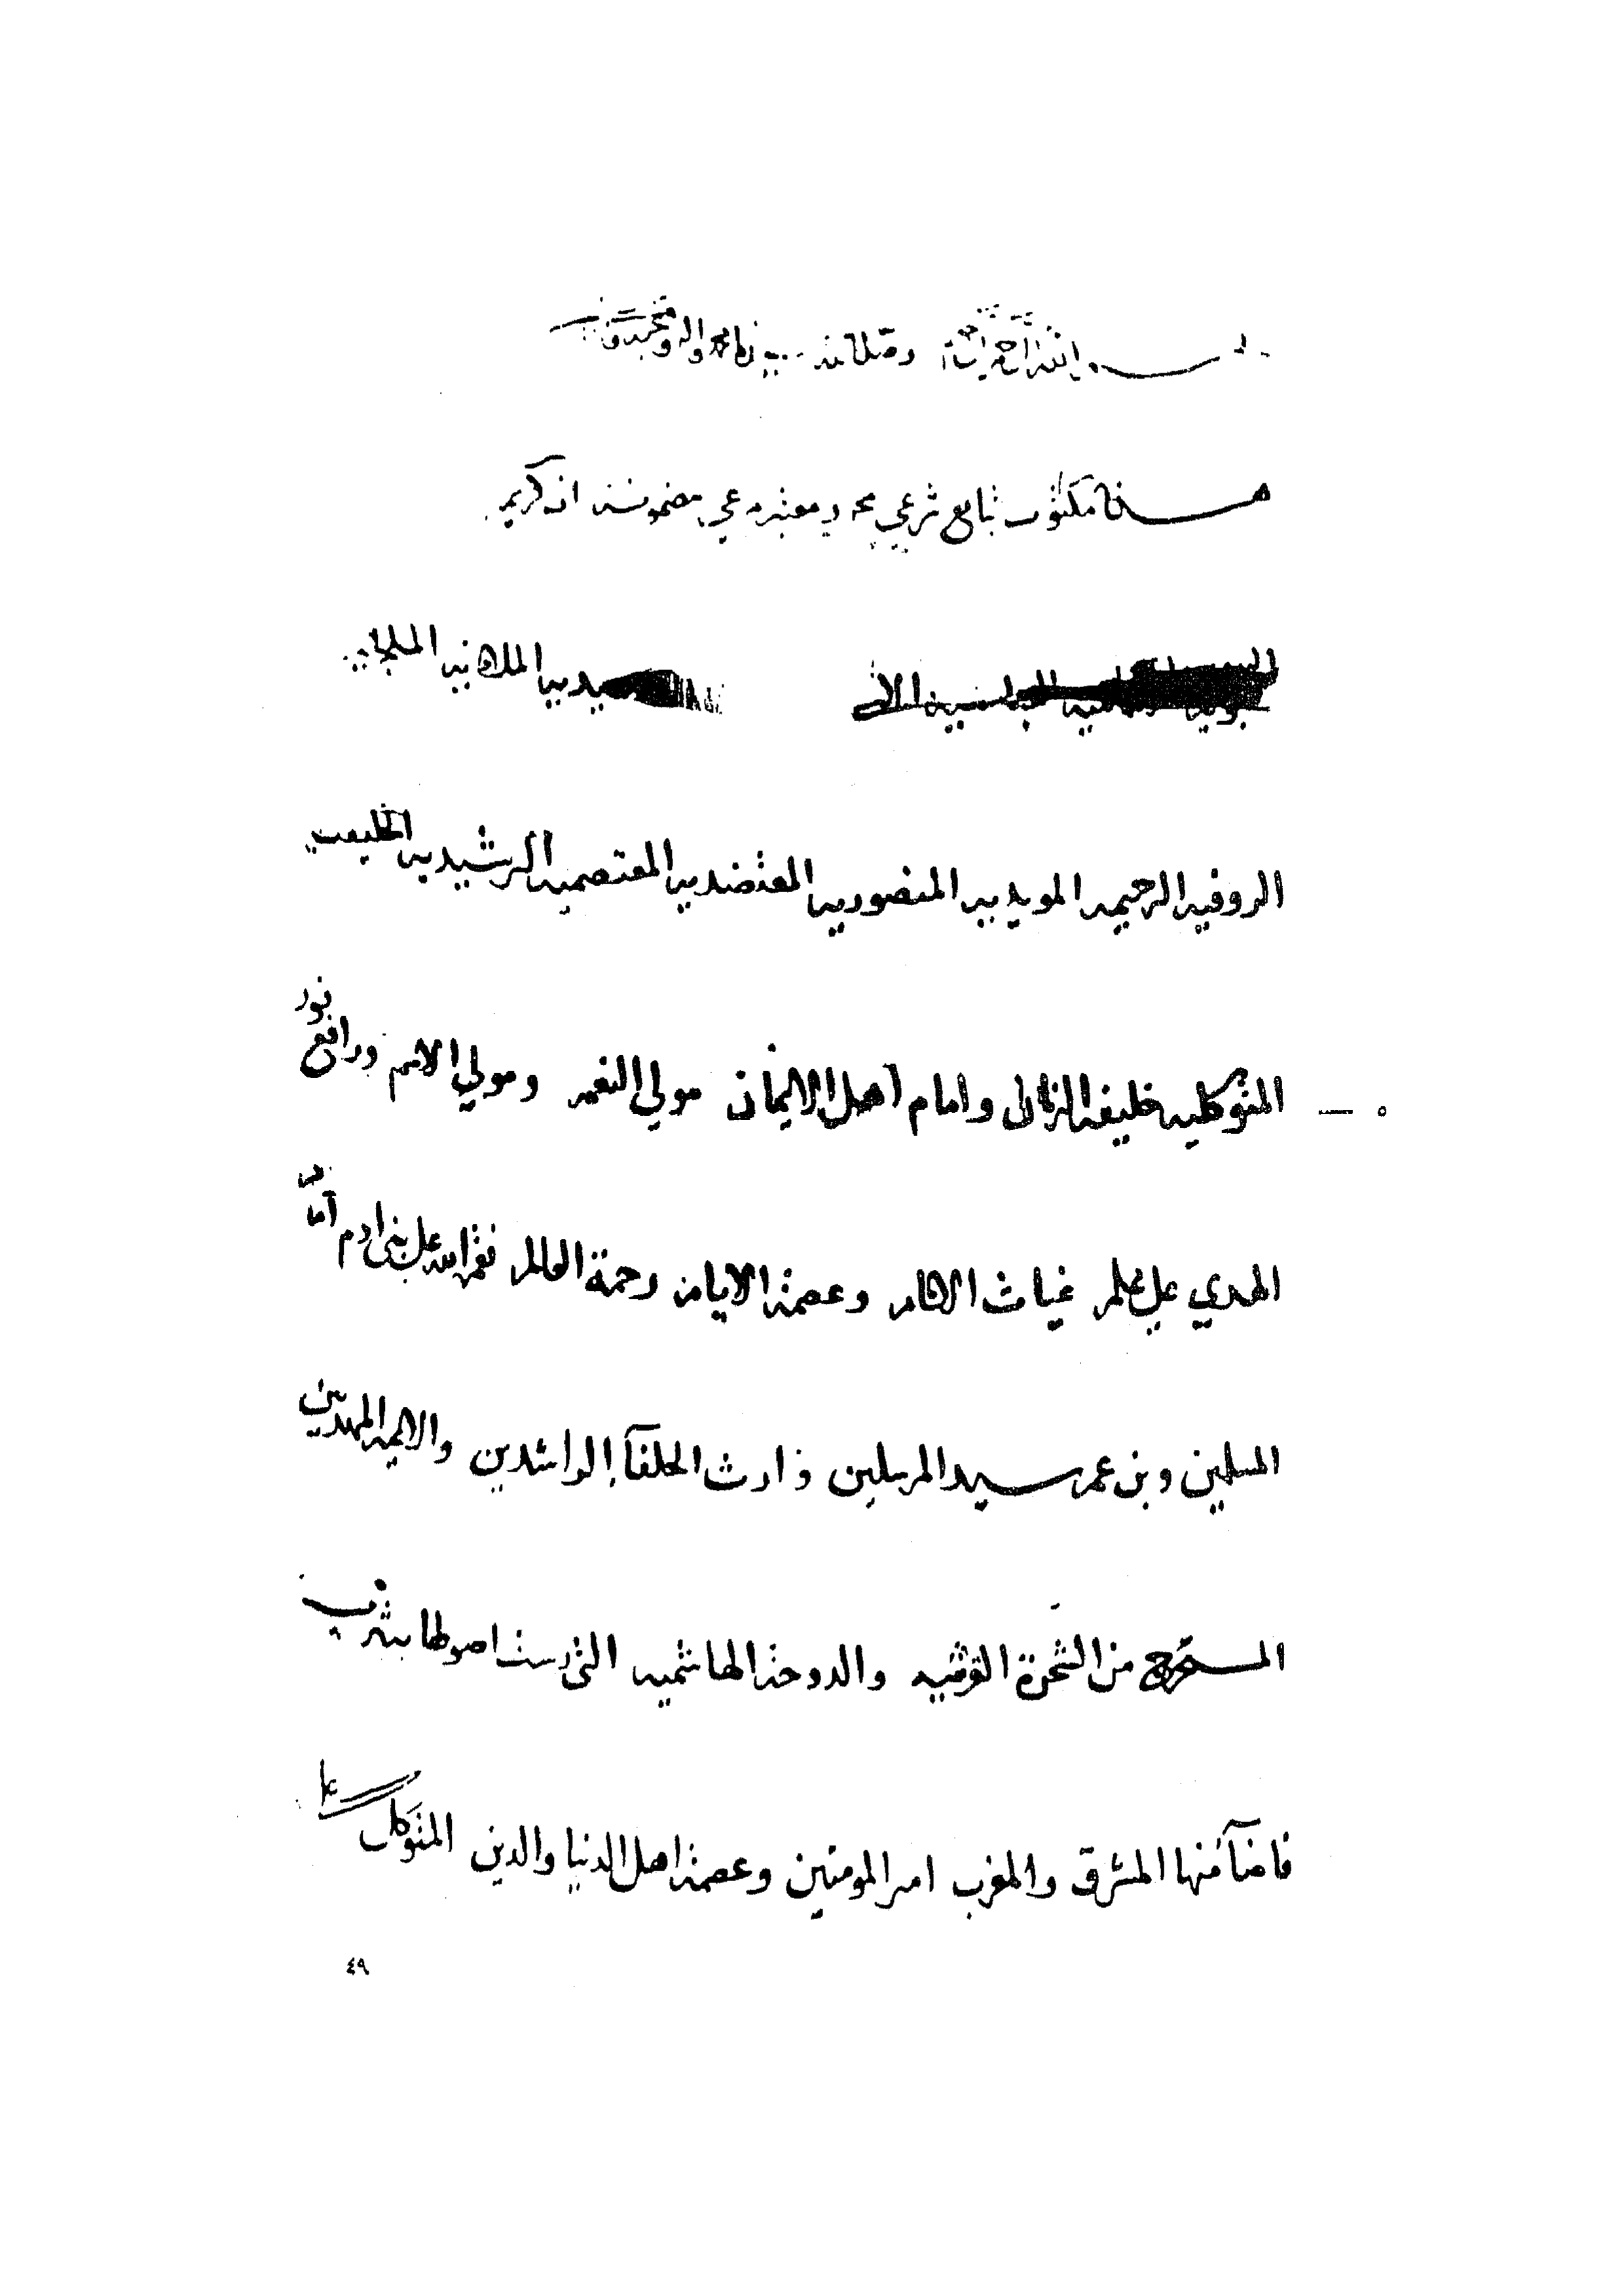 بسم الله الرحمن الرحيم وصلى الله على سيدنا محمد واله وصحبه
هذا مكتوب تبايع شرعي محرر معتبر مرعي مضمونه انه كريم
الملكية
الروفيه الرحيميه المويديه المنصوريه المعتضديه المعتصميه الرشيديه الخليفيه
المتوكليه خليفة الزمان وامام اهل الايمان مولي النعم ومولي الامم ورافع نور
الهدي علي علم غياث الانام وعصمة الايام رحمة العالم نعم الله على بني ادم امام
المسلمين وبن عم سيد المرسلين وارث الخلفآ الراشدين والايمه المهديين
من الشجرة القرشيه والدوحة الهاشميه التي رست اصولها بيثرب
فاضآ منها المشرق والمغرب امير المومنين وعصمة اهل الدنيا والدين المتوكل على
٥
٤٩